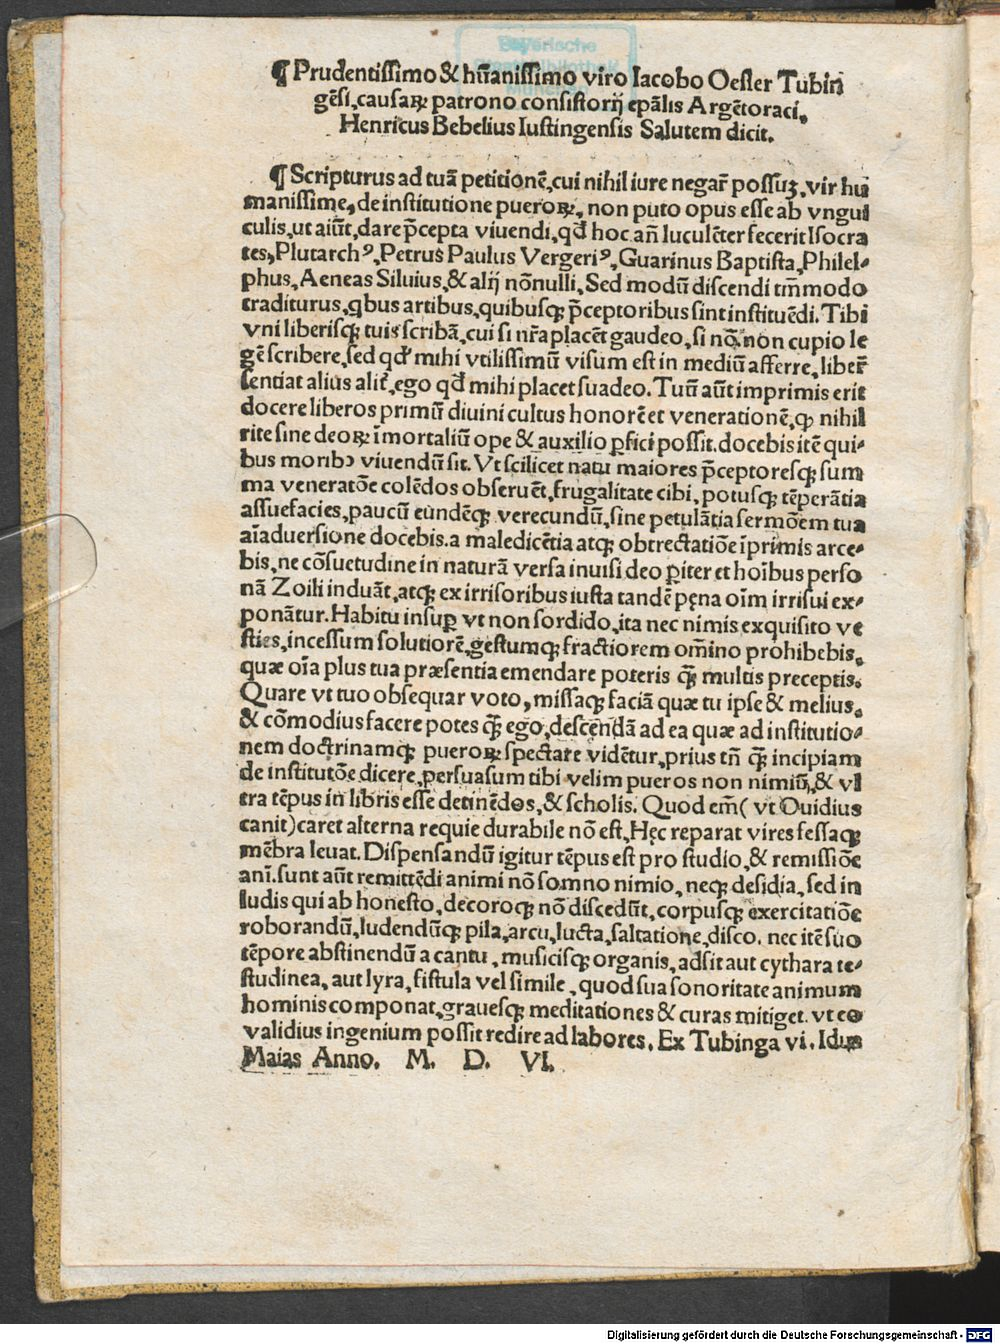 Bayerische
Staatsbibliothek
München
¶ Prudentissimo & hūanissimo viro Iacobo Oesler Tubin
gēsi, causaꝝ patrono consistorij epālis Argētoraci,
Henricus Bebelius Iustingensis Salutem dicit.
¶ Scripturus ad tuā petitionē, cui nihil iure negar̄ possuꝫ, vir hu
manissime, de institutione pueroꝝ, non puto opus esse ab vngui
culis, ut aiūt, dare p̄cepta viuendi, qd̄ hoc an̄ luculēter fecerit Isocra
tes, Plutarchꝰ, Petrus Paulus Vergeriꝰ, Guarinus Baptista, Philel⸗
phus, Aeneas Siluius, & alij nōnulli, Sed modū discendi tm̄modo
traditurus, qbus artibus, quibusqꝫ p̄ceptoribus sint instituēdi. Tibi
vni liberisqꝫ tuis scribā, cui si nr̄a placēt gaudeo, si nō, non cupio le
gē scribere, sed qd̄ mihi vtilissimū visum est in mediū afferre, liber̄
sentiat alius alit̄, ego qd̄ mihi placet suadeo. Tuū aūt imprimis erit
docere liberos primū diuini cultus honorē et venerationē, ꝙ nihil
rite sine deoꝝ īmortaliū ope & auxilio ꝑfici possit. docebis itē qui⸗
bus moribꝰ viuendū sit. Vt scilicet natu maiores p̄ceptoresqꝫ sum
ma veneratōe colēdos obseruēt, frugalitate cibi, potusqꝫ tēperātia
assuefacies, paucū eūndēqꝫ verecundū, sine petulātia sermōem tua
aīaduersione docebis. a maledicētia atqꝫ obtrectatiōe īprimis arce⸗
bis, ne cōsuetudine in naturā versa inuisi deo ꝑiter et hoībus perso
nā Zoili induāt, atqꝫ ex irrisoribus iusta tandē pęna oīm irrisui ex⸗
ponātur. Habitu insuꝑ vt non sordido, ita nec nimis exquisito ve
sties, incessum solutiorē, gestumqꝫ fractiorem om̄ino prohibebis,
quæ oīa plus tua præsentia emendare poteris qꝫ̄ multis preceptis.
Quare vt tuo obsequar voto, missaqꝫ faciā quæ tu ipse & melius,
& cōmodius facere potes qꝫ̄ ego, descendā ad ea quæ ad institutio⸗
nem doctrinamqꝫ pueroꝝ spectare vidētur, prius tn̄ qꝫ̄ incipiam
de institutōe dicere, persuasum tibi velim pueros non nimiū, & vl
tra tēpus in libris esse detinēdos, & scholis. Quod em̄ ( vt Ouidius
canit) caret alterna requie durabile nō est, Hęc reparat vires fessaqꝫ
mēbra leuat. Dispensandū igitur tēpus est pro studio, & remissiōe
anī. sunt aūt remittēdi animi nō somno nimio, neqꝫ desidia, sed in
ludis qui ab honesto, decoroqꝫ nō discedūt, corpusqꝫ exercitatiōe
roborandū, ludendūqꝫ pila, arcu, lucta, saltatione, disco. nec itē suo
tēpore abstinendū a cantu, musicisqꝫ organis, adsit aut cythara te⸗
studinea, aut lyra, fistula vel simile, quod sua sonoritate animum
hominis componat, grauesqꝫ meditationes & curas mitiget. vt eo
validius ingenium possit redire ad labores. Ex Tubinga vi. Idus
Maias Anno. M. D. VI.
Digitalisierung gefördert durch die Deutsche Forschungsgemeinschaft - DFG